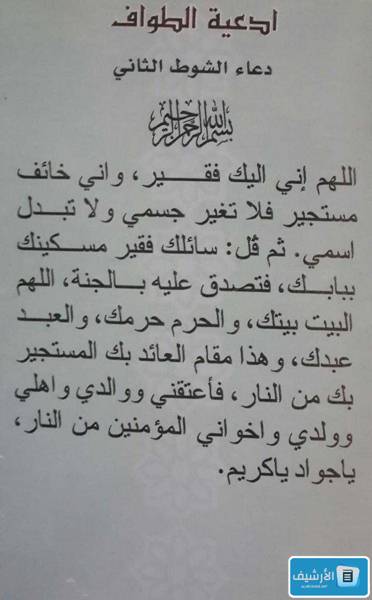 ادعية الطواف
دعاء الشوط الثاني
بسم الله الرحمن الرحيم
اللهم إني اليك فقير، واني خائف
مستجير فلا تغير جسمي ولا تبدل
اسمي. ثم قل: سائلك فقير مسكينك
ببابك، فتصدق عليه بالجنة، اللهم
البيت بيتك، والحرم حرمك، والعبد
عبدك، وهذا مقام العائد بك المستجير
بك من النار، فأعتقني ووالدي واهلي
وولدي واخواني المؤمنين من النار،
ياجواد ياكريم.
الأرشيف